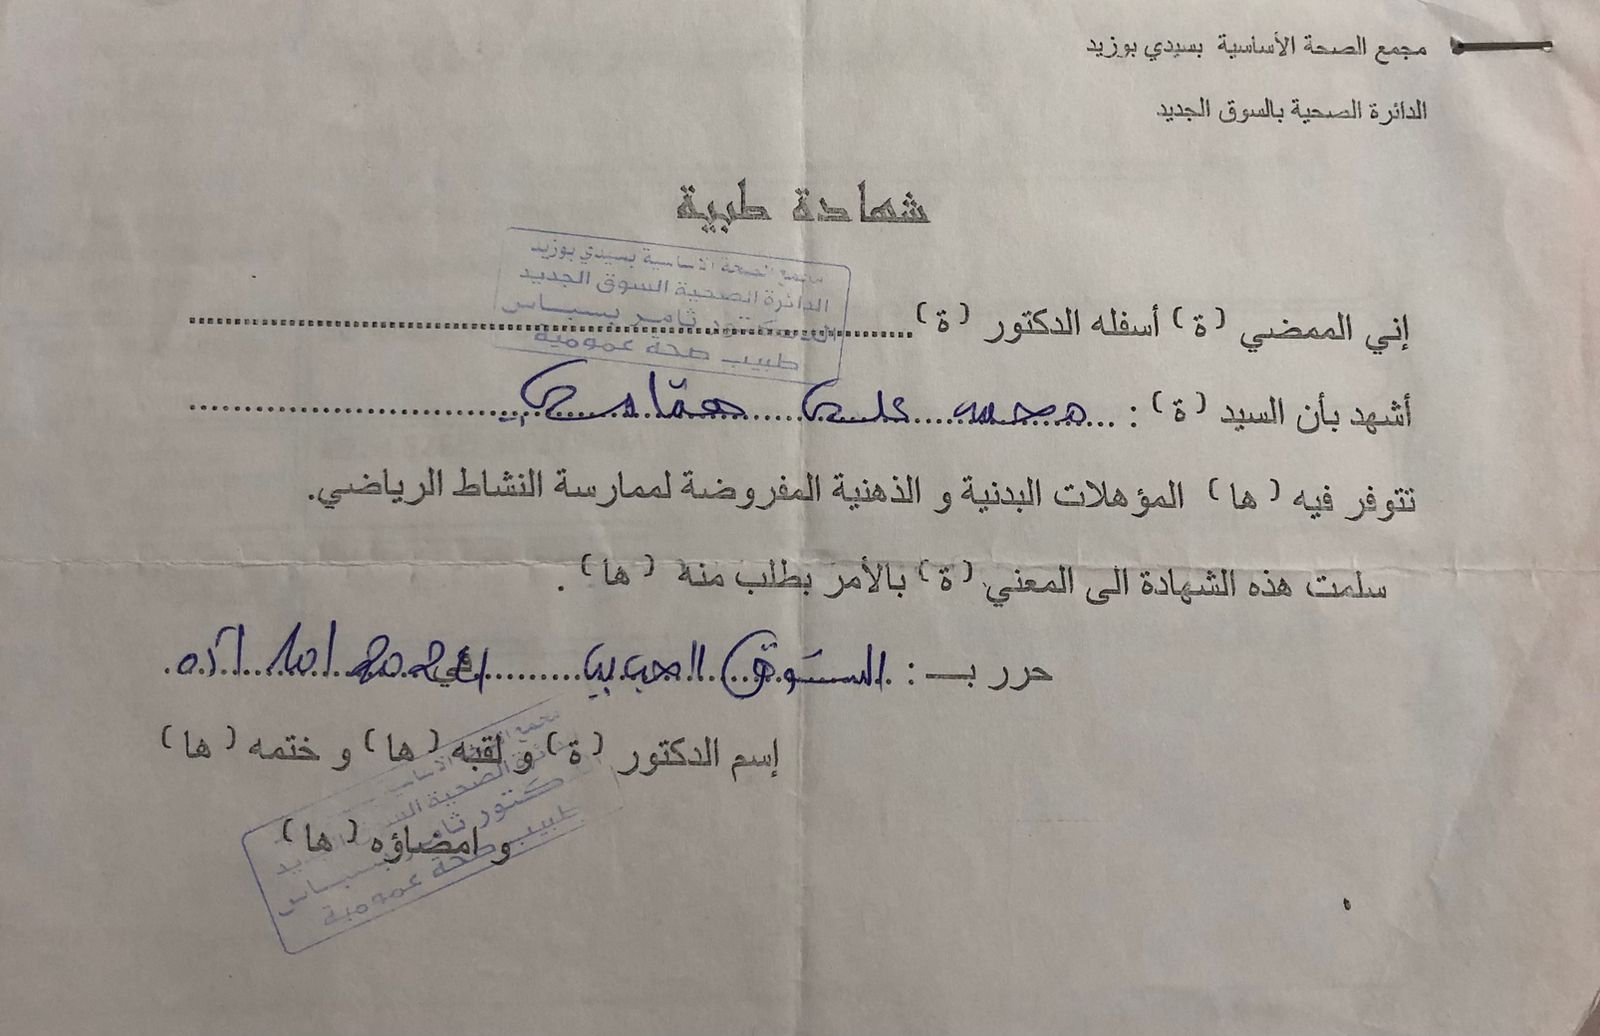 مجمع الصحة الأساسية بسيدي بوزيد
الدائرة الصحية بالسوق الجديد
شهادة طبية
مجمع الصحة الأساسية بسيدي بوزيد
الدائرة الصحية السوق الجديد
الدكتور ثامر بسباس
طبيب صحة عمومية
إني الممضي (ة) أسفله الدكتور (ة)
أشهد بأن السيد (ة) : محمد علي همامي
تتوفر فيه (ها) المؤهلات البدنية و الذهنية المفروضة لممارسة النشاط الرياضي.
سلمت هذه الشهادة الى المعني (ة) بالأمر بطلب منه (ها) .
حرر بـ : السوق الجديد في 2021
إسم الدكتور (ة) و لقبه (ها) و ختمه (ها)
و امضاؤه (ها)
مجمع الصحة الأساسية
الدائرة الصحية السوق الجديد
الدكتور ثامر بسباس
طبيب صحة عمومية